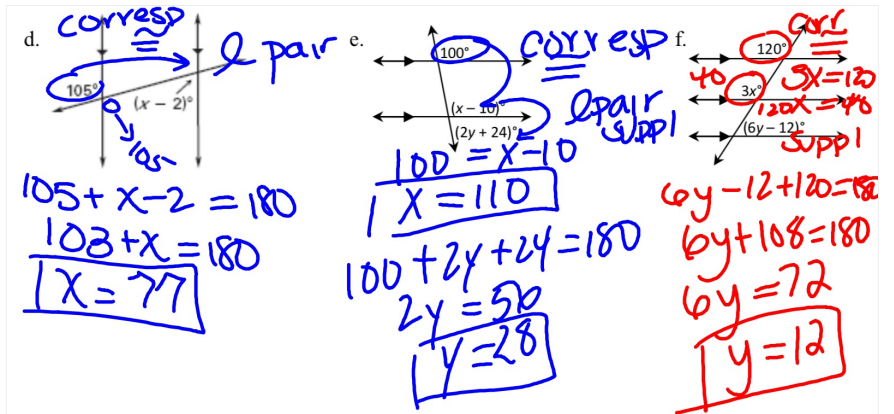 d.
corresp
l pair
105°
(x − 2)°
105
105 + x − 2 = 180
103 + x = 180
x = 77
e.
100°
corresp
(x − 10)°
l pair
suppl
(2y + 24)°
100 = x − 10
x = 110
100 + 2y + 24 = 180
2y = 56
y = 28
f.
corr
120°
40
3x°
3x = 120
x = 40
120
(6y − 12)°
suppl
6y − 12 + 120 = 180
6y + 108 = 180
6y = 72
y = 12